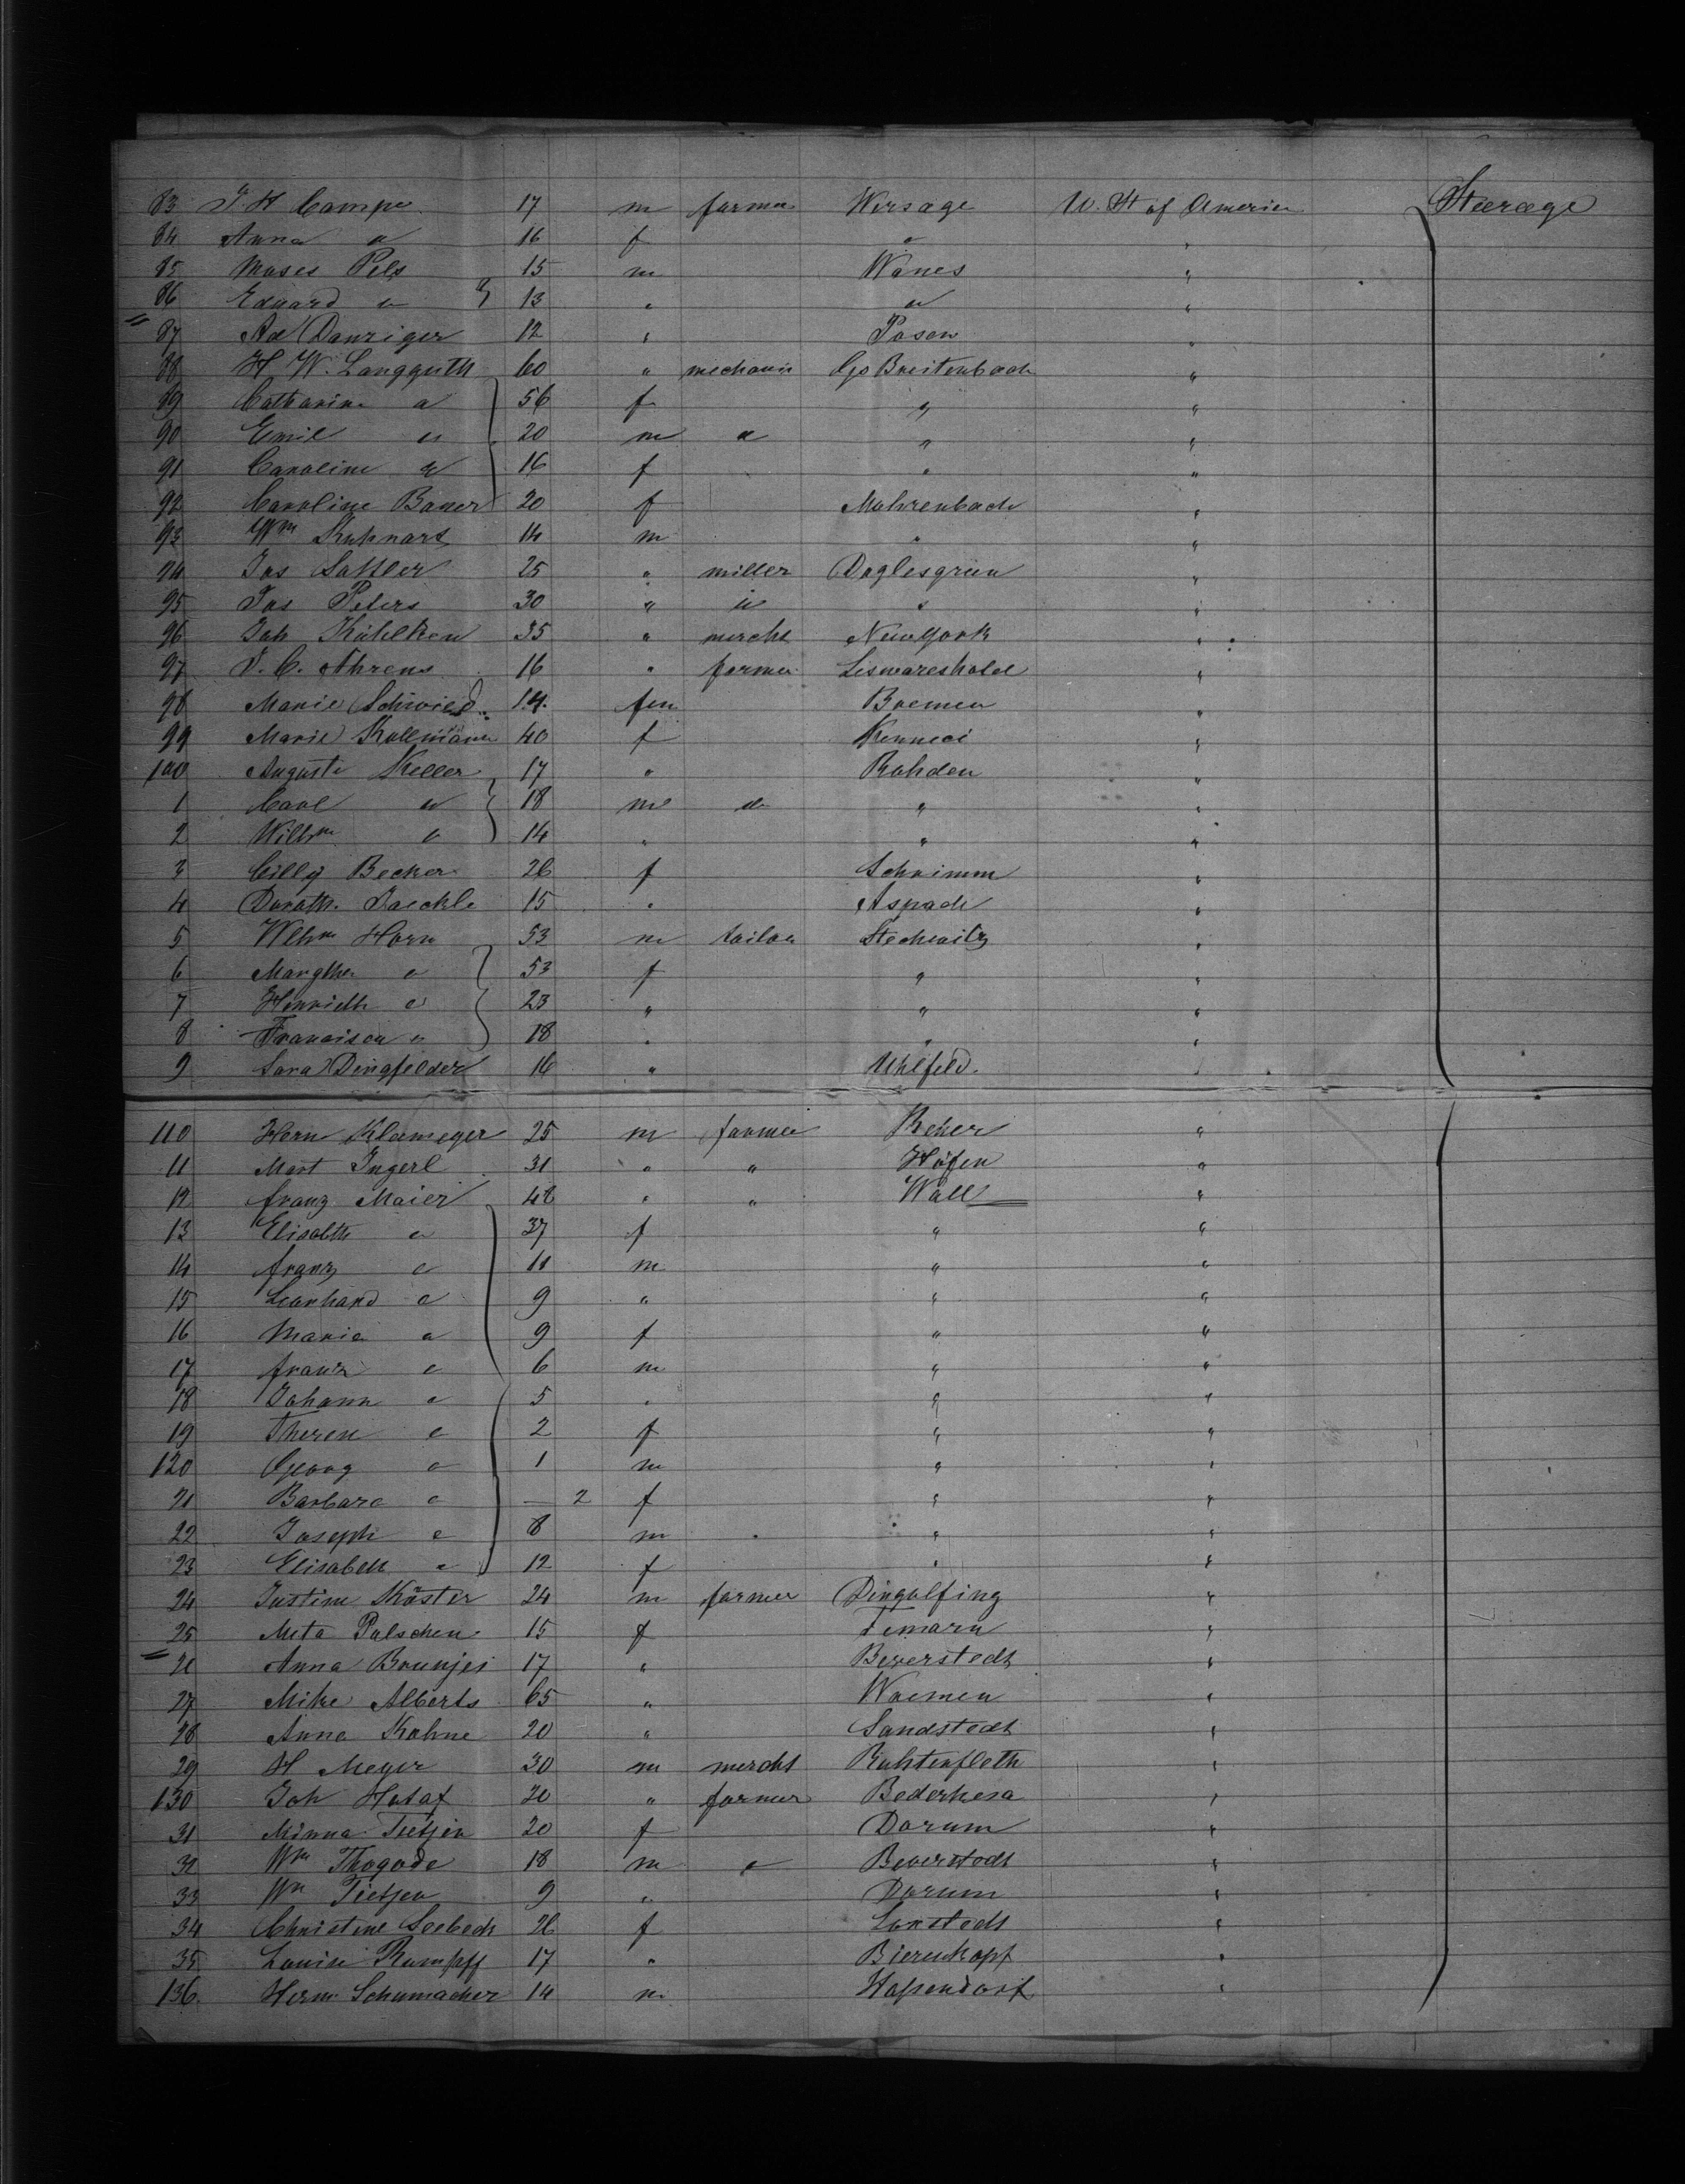 83 J. H Campe 17 m farmer Wersage U. St of America Steerage
84 Anna " 16 f " "
85 Moses Pels 15 m Wanes "
86 Eduard " 13 " " "
87 Ad Danziger 12 " Posen "
88 H W. Langguth 60 " mechanic Gr Breitenbach "
89 Catharine " 56 f " "
90 Emil " 20 m " " "
91 Caroline " 16 f " "
92 Caroline Bauer 20 f Mohrenbach "
93 Wm Kuhnart 14 m " "
94 Jos Sattler 25 " miller Doglesgrün "
95 Jos Peters 30 " " " "
96 Joh Kühlken 35 " mercht New York "
97 D. C. Ahrens 16 " farmer "
98 Marie Schwied 14 fem Bremen "
99 Marie Kollmann 40 f "
100 Auguste Keller 17 " Rahden "
1 Carl " 18 m " " "
2 Wilhm " 14 " " "
3 Cilly Becker 26 f Schrimm "
4 Doroth. Jaeckle 15 " Aspach "
5 Wlhm Horn 53 m tailor Stechwitz "
6 Margthe " 53 f " "
7 Henrieth " 23 " " "
8 Francisca " 18 " " "
9 Sara Dingfelder 16 " Uhlfeld. "
110 Herm Klameyer 25 m farmer Reher "
11 Mart Ingerl 31 " " Höfen "
12 franz Maier 48 " " Wall "
13 Elisabth " 37 f " "
14 franz " 11 m " "
15 Leonhard " 9 " " "
16 Marie " 9 f " "
17 franz " 6 m " "
18 Johann " 5 " " "
19 Therese " 2 f " "
120 Georg " 1 m " "
21 Barbara " — 2 f " "
22 Joseph " 8 m " "
23 Elisabeth " 12 f " "
24 Justine Köster 24 m farmer Dingolfing "
25 Meta Palschen 15 f Temarn "
26 Anna Brunjes 17 " Beverstedt "
27 Mike Alberts 65 " Wremen "
28 Anna Kohne 20 " Sandstedt "
29 H Meyer 30 m mercht Rechtenfleth "
130 Joh Hutaf 20 " farmer Bederkesa "
31 Minna Tietjen 20 f Dorum "
32 Wm Thogode 18 m " Beverstedt "
33 Wm Tietjen 9 " Dorum "
34 Christine Seebeck 26 f Loxstedt "
35 Louise Rumpff 17 " Bierenkopf "
136. Herm Schumacher 14 m Hassendorf "